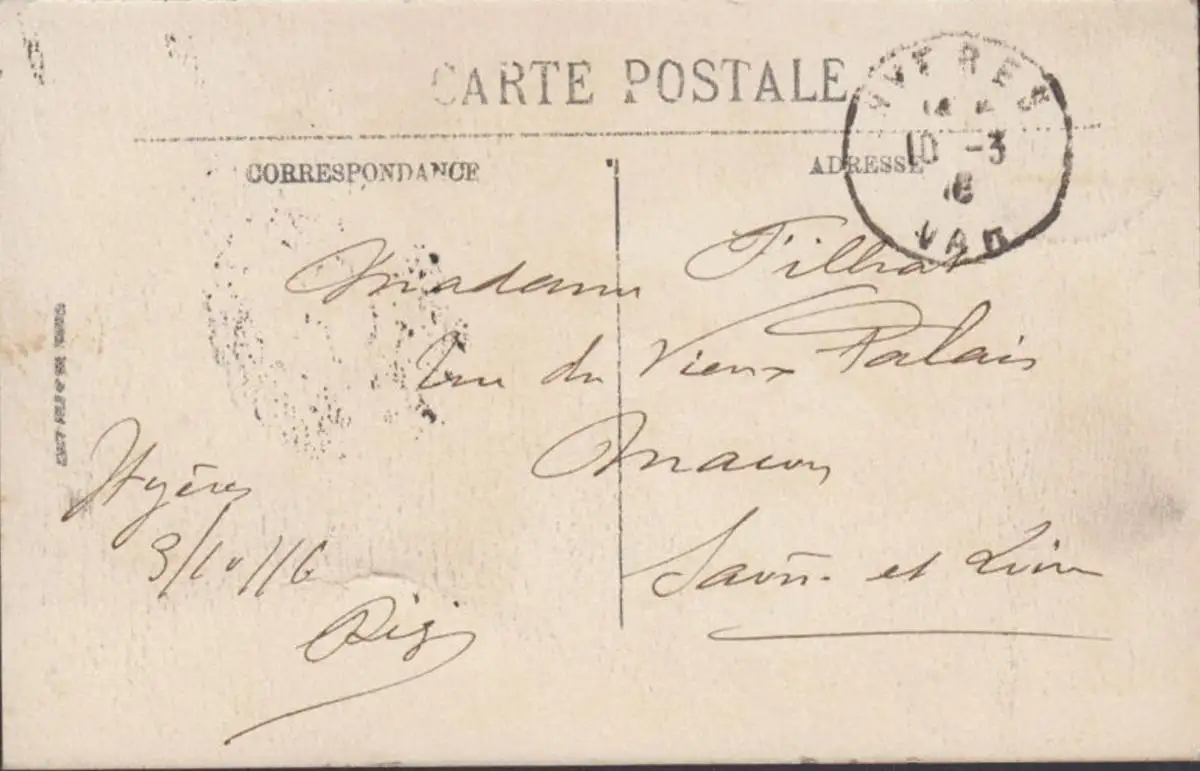 CARTE POSTALE
CORRESPONDANCE
ADRESSE
HYÈRES
10 -3
16
VAR
Madame Tilhat
rue du Vieux Palais
Macon
Saône et Loire
Hyères
3/10/16